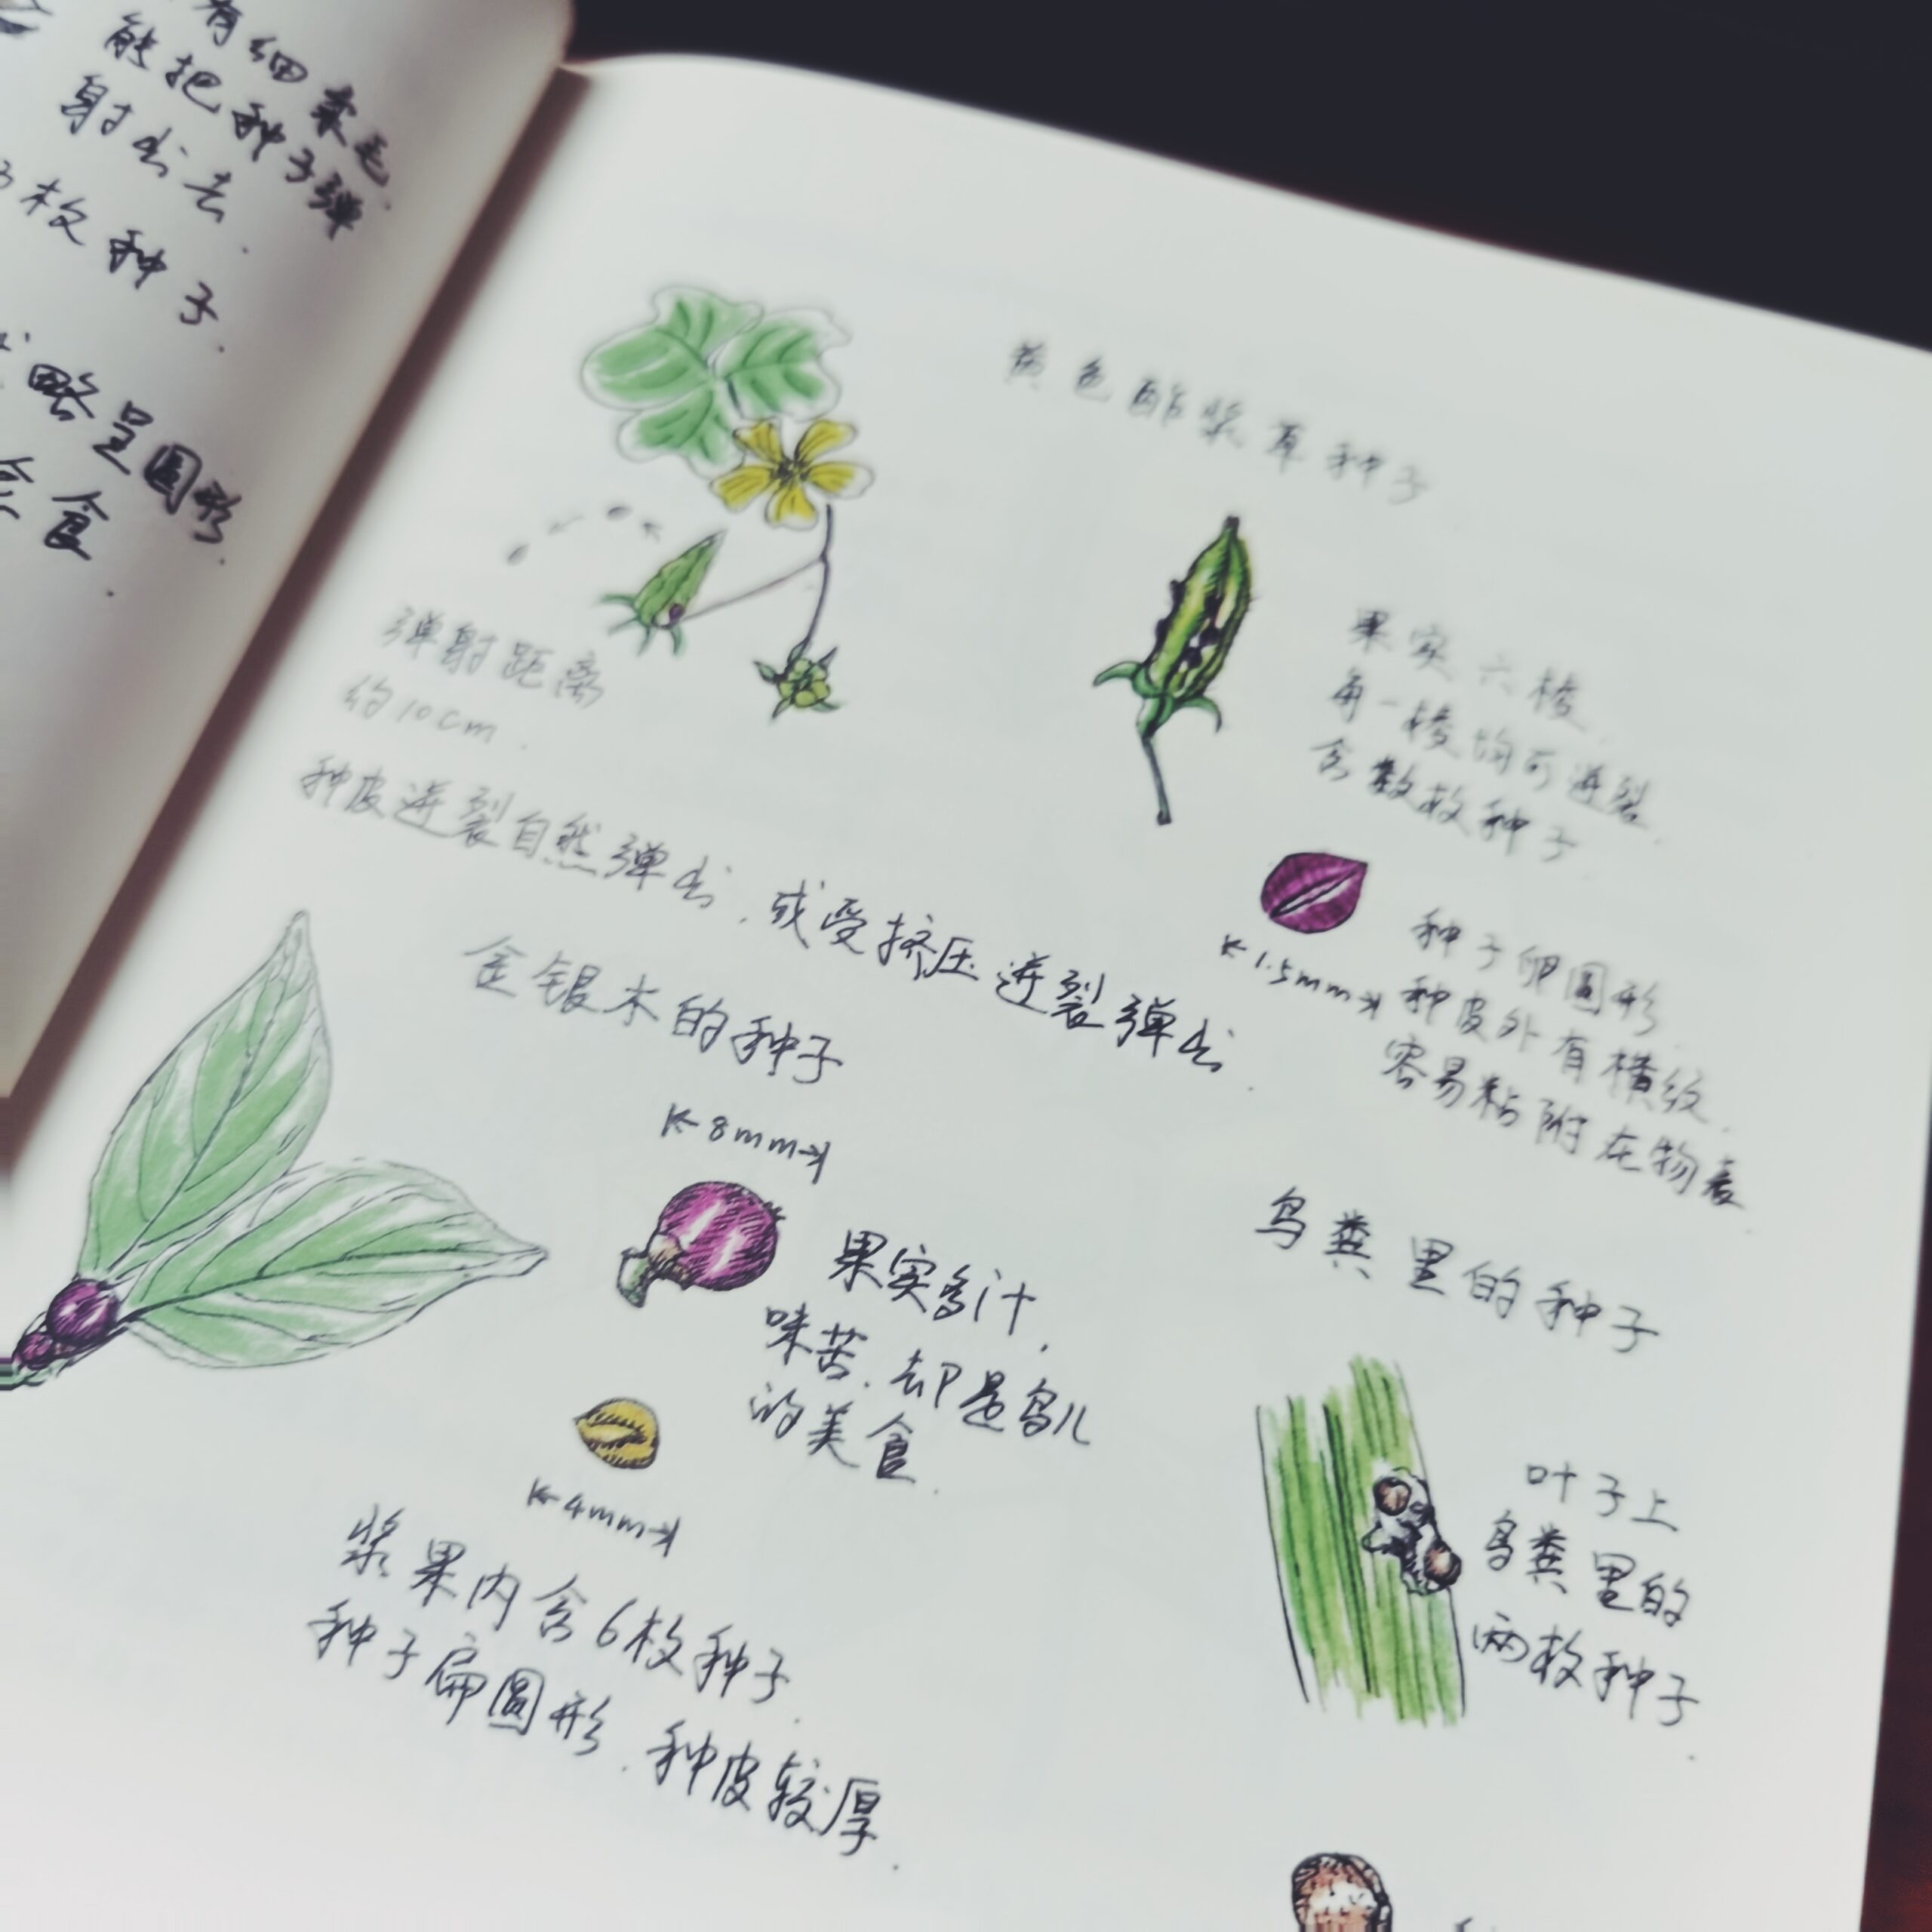 有细柔毛
能把种子弹
射出去.
枚种子.
略呈圆形.
食.
黄色酢浆草种子
弹射距离
约10cm.
种皮迸裂自然弹出.或受挤压迸裂弹出.
果实六棱.
每一棱均可迸裂.
含数枚种子
1.5mm
种子卵圆形.
种皮外有横纹.
容易粘附在物表.
金银木的种子
8mm
果实多汁,
味苦.却是鸟儿
的美食.
4mm
浆果内含6枚种子.
种子扁圆形.种皮较厚.
鸟粪里的种子
叶子上
鸟粪里的
两枚种子.